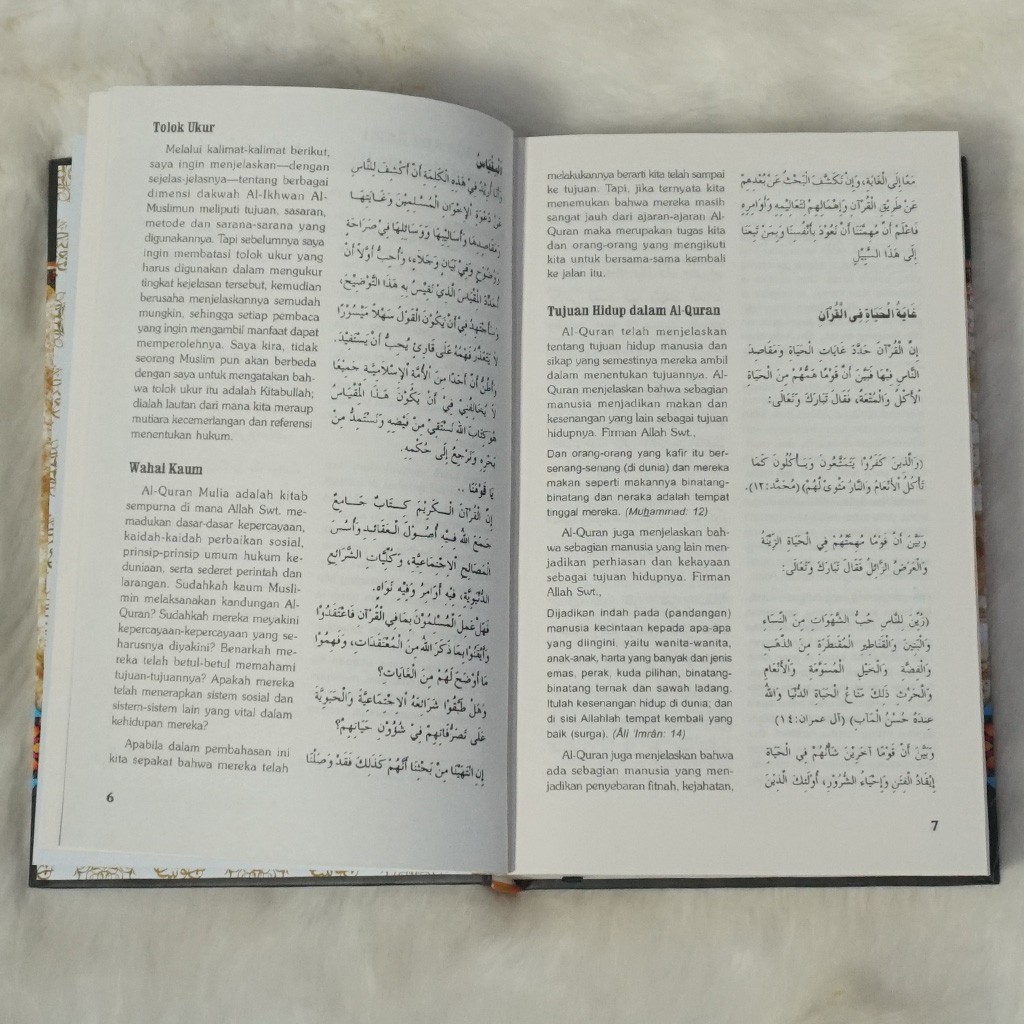 Tolok Ukur
Melalui kalimat-kalimat berikut,
saya ingin menjelaskan—dengan
sejelas-jelasnya—tentang berbagai
dimensi dakwah Al-Ikhwan Al-
Muslimun meliputi tujuan, sasaran,
metode dan sarana-sarana yang
digunakannya. Tapi sebelumnya saya
ingin membatasi tolok ukur yang
harus digunakan dalam mengukur
tingkat kejelasan tersebut, kemudian
berusaha menjelaskannya semudah
mungkin, sehingga setiap pembaca
yang ingin mengambil manfaat dapat
memperolehnya. Saya kira, tidak
seorang Muslim pun akan berbeda
dengan saya untuk mengatakan bah-
wa tolok ukur itu adalah Kitabullah;
dialah lautan dari mana kita meraup
mutiara kecemerlangan dan referensi
menentukan hukum.
Wahai Kaum
Al-Quran Mulia adalah kitab
sempurna di mana Allah Swt. me-
madukan dasar-dasar kepercayaan,
kaidah-kaidah perbaikan sosial,
prinsip-prinsip umum hukum ke-
duniaan, serta sederet perintah dan
larangan. Sudahkah kaum Musli-
min melaksanakan kandungan Al-
Quran? Sudahkah mereka meyakini
kepercayaan-kepercayaan yang se-
harusnya diyakini? Benarkah me-
reka telah betul-betul memahami
tujuan-tujuannya? Apakah mereka
telah menerapkan sistem sosial dan
sistem-sistem lain yang vital dalam
kehidupan mereka?
Apabila dalam pembahasan ini
kita sepakat bahwa mereka telah
الْمِقْيَاسُ
وَإِنِّي أُرِيْدُ فِيْ هٰذِهِ الْكَلِمَةِ أَنْ أَكْشِفَ لِلنَّاسِ
عَنْ دَعْوَةِ الْإِخْوَانِ الْمُسْلِمِيْنَ وَغَايَتِهَا
وَمَقَاصِدِهَا وَأَسَالِيْبِهَا وَوَسَائِلِهَا فِيْ صَرَاحَةٍ
وَوُضُوْحٍ وَفِيْ بَيَانٍ وَجَلَاءٍ، وَأُحِبُّ أَوَّلاً أَنْ
أُحَدِّدَ الْمِقْيَاسَ الَّذِيْ نَقِيْسُ بِهِ هٰذَا التَّوْضِيْحَ،
وَسَأَجْتَهِدُ فِيْ أَنْ يَكُوْنَ الْقَوْلُ سَهْلاً مَيْسُوْرًا
لَا يَتَعَذَّرُ فَهْمُهُ عَلَى قَارِئٍ يُحِبُّ أَنْ يَسْتَفِيْدَ.
وَأَظُنُّ أَنَّ أَحَدًا مِنَ الْأُمَّةِ الْإِسْلَامِيَّةِ جَمِيْعًا
لَا يُخَالِفُنِيْ فِيْ أَنْ يَكُوْنَ هٰذَا الْمِقْيَاسُ
هُوَ كِتَابُ اللهِ نَسْتَقِيْ مِنْ فَيْضِهِ وَنَسْتَمِدُّ مِنْ
بَحْرِهِ وَنَرْجِعُ إِلَى حُكْمِهِ.
يَا قَوْمَنَا ..
إِنَّ الْقُرْآنَ الْكَرِيْمَ كِتَابٌ جَامِعٌ
جَمَعَ اللهُ فِيْهِ أُصُوْلَ الْعَقَائِدِ وَأُسُسَ
الْمَصَالِحِ الْاِجْتِمَاعِيَّةِ، وَكُلِّيَّاتِ الشَّرَائِعِ
الدُّنْيَوِيَّةِ، فِيْهِ أَوَامِرُ وَفِيْهِ نَوَاهٍ.
فَهَلْ عَمِلَ الْمُسْلِمُوْنَ بِمَا فِي الْقُرْآنِ فَاعْتَقَدُوْا
وَأَيْقَنُوْا بِمَا ذَكَرَ اللهُ مِنَ الْمُعْتَقَدَاتِ، وَفَهِمُوْا
مَا أَوْضَحَ لَهُمْ مِنَ الْغَايَاتِ؟
وَهَلْ طَبَّقُوْا شَرَائِعَهُ الْاِجْتِمَاعِيَّةَ وَالْحَيَوِيَّةَ
عَلَى تَصَرُّفَاتِهِمْ فِيْ شُؤُوْنِ حَيَاتِهِمْ؟
إِنِ انْتَهَيْنَا مِنْ بَحْثِنَا أَنَّهُمْ كَذٰلِكَ فَقَدْ وَصَلْنَا
6
melakukannya berarti kita telah sampai
ke tujuan. Tapi, jika ternyata kita
menemukan bahwa mereka masih
sangat jauh dari ajaran-ajaran Al-
Quran maka merupakan tugas kita
dan orang-orang yang mengikuti
kita untuk bersama-sama kembali
ke jalan itu.
Tujuan Hidup dalam Al-Quran
Al-Quran telah menjelaskan
tentang tujuan hidup manusia dan
sikap yang semestinya mereka ambil
dalam menentukan tujuannya. Al-
Quran menjelaskan bahwa sebagian
manusia menjadikan makan dan
kesenangan yang lain sebagai tujuan
hidupnya. Firman Allah Swt.,
Dan orang-orang yang kafir itu ber-
senang-senang (di dunia) dan mereka
makan seperti makannya binatang-
binatang dan neraka adalah tempat
tinggal mereka. (Muḥammad: 12)
Al-Quran juga menjelaskan bah-
wa sebagian manusia yang lain men-
jadikan perhiasan dan kekayaan
sebagai tujuan hidupnya. Firman
Allah Swt.,
Dijadikan indah pada (pandangan)
manusia kecintaan kepada apa-apa
yang diingini, yaitu wanita-wanita,
anak-anak, harta yang banyak dari jenis
emas, perak, kuda pilihan, binatang-
binatang ternak dan sawah ladang.
Itulah kesenangan hidup di dunia; dan
di sisi Allahlah tempat kembali yang
baik (surga). (Âli 'Imrân: 14)
Al-Quran juga menjelaskan bahwa
ada sebagian manusia yang men-
jadikan penyebaran fitnah, kejahatan,
مَعًا إِلَى الْغَايَةِ، وَإِنْ تَكَشَّفَ الْبَحْثُ عَنْ بُعْدِهِمْ
عَنْ طَرِيْقِ الْقُرْآنِ وَإِهْمَالِهِمْ لِتَعَالِيْمِهِ وَأَوَامِرِهِ
فَاعْلَمْ أَنَّ مُهِمَّتَنَا أَنْ نَعُوْدَ بِأَنْفُسِنَا وَبِمَنْ تَبِعَنَا
إِلَى هٰذَا السَّبِيْلِ
غَايَةُ الْحَيَاةِ فِي الْقُرْآنِ
إِنَّ الْقُرْآنَ حَدَّدَ غَايَاتِ الْحَيَاةِ وَمَقَاصِدَ
النَّاسِ فِيْهَا فَبَيَّنَ أَنَّ قَوْمًا هَمُّهُمْ مِنَ الْحَيَاةِ
الْأَكْلُ وَالْمُتْعَةُ، فَقَالَ تَبَارَكَ وَتَعَالَى:
(وَالَّذِيْنَ كَفَرُوْا يَتَمَتَّعُوْنَ وَيَأْكُلُوْنَ كَمَا
تَأْكُلُ الْأَنْعَامُ وَالنَّارُ مَثْوًى لَهُمْ) (مُحَمَّد: ١٢).
وَبَيَّنَ أَنَّ قَوْمًا مُهِمَّتُهُمْ فِي الْحَيَاةِ الزِّيْنَةُ
وَالْعَرَضُ الزَّائِلُ فَقَالَ تَبَارَكَ وَتَعَالَى:
(زُيِّنَ لِلنَّاسِ حُبُّ الشَّهَوَاتِ مِنَ النِّسَاءِ
وَالْبَنِيْنَ وَالْقَنَاطِيْرِ الْمُقَنْطَرَةِ مِنَ الذَّهَبِ
وَالْفِضَّةِ وَالْخَيْلِ الْمُسَوَّمَةِ وَالْأَنْعَامِ
وَالْحَرْثِ ذٰلِكَ مَتَاعُ الْحَيَاةِ الدُّنْيَا وَاللهُ
عِنْدَهُ حُسْنُ الْمَآبِ) (آل عمران: ١٤)
وَبَيَّنَ أَنَّ قَوْمًا آخَرِيْنَ شَأْنُهُمْ فِي الْحَيَاةِ
إِيْقَادُ الْفِتَنِ وَإِحْيَاءُ الشُّرُوْرِ، أُوْلٰئِكَ الَّذِيْنَ
7